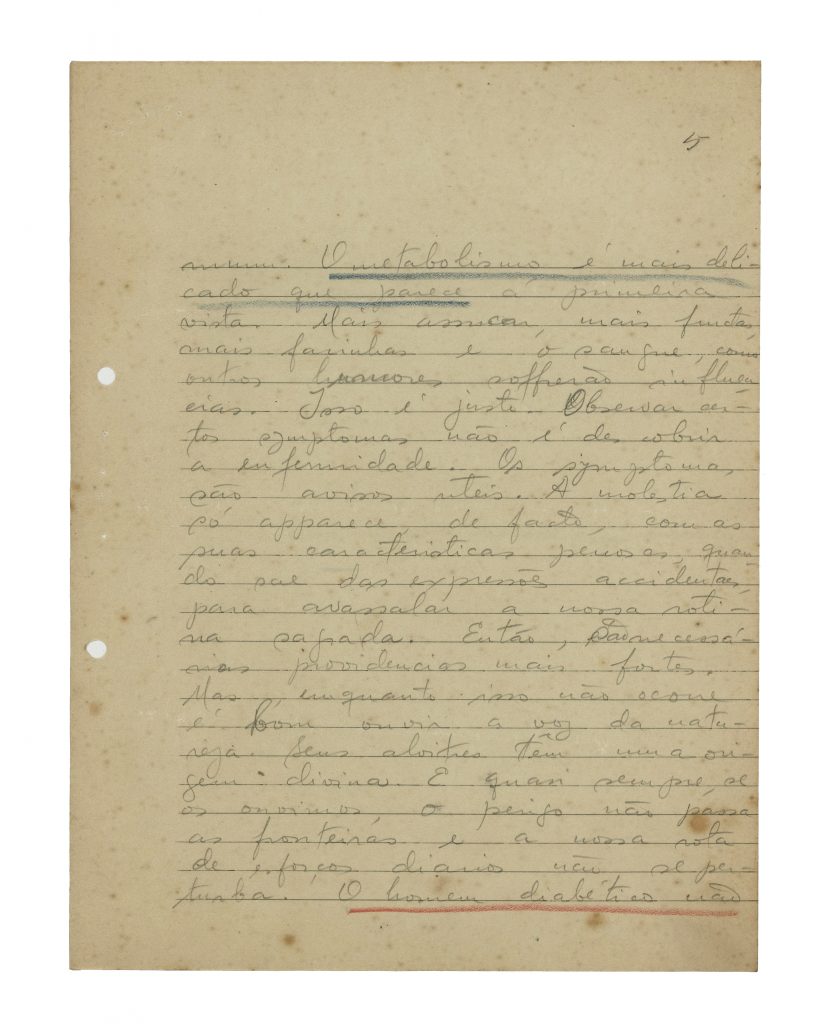 5
mum. O metabolismo é mais deli-
cado que parece á primeira
vista. Mais assucar, mais fructas,
mais farinhas e o sangue, como
outros humores soffrerão influen-
cias. Isso é justo. Observar cer-
tos symptomas não é descobrir
a enfermidade. Os symptomas
são avisos uteis. A molestia
só apparece, de facto, com as
suas caracteristicas penosas, quan-
do sae das expressões accidentaes,
para avassalar a nossa roti-
na sagrada. Então, são necessá-
rias providencias mais fortes.
Mas, emquanto isso não ocorre
é bom ouvir a voz da natu-
reza. Seus alvitres têm uma ori-
gem divina. E quasi sempre, se
os ouvimos, o perigo não passa
as fronteiras e a nossa rota
de esforços diarios não se per-
turba. O homem diabético não